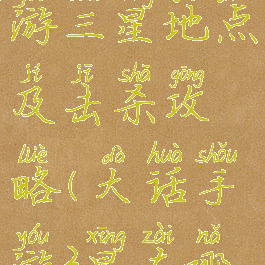 游三星地点
jí jī shā gōng
及击杀攻
lüè dà huà shǒu
略(大话手
yóu xīng zài nǎ